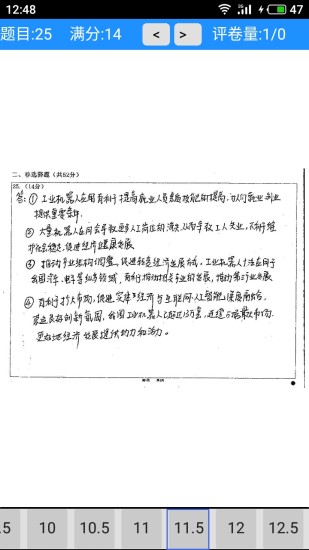 12:48 47
题目:25 满分:14 < > 评卷量:1/0
二、非选择题（共52分）
25.（14分）
答：① 工业机器人应用有利于提高就业人员素质技能的提高，为人们就业创业
提供重要条件。
② 大量机器人应用会导致更多人工岗位的消失，从而导致工人失业，不利于维
护社会稳定，促进经济健康发展
③ 推动产业结构调整，促进转变经济发展方式，工业机器人广泛应用于
我国汽车、电子等行业领域，有利于推动相关产业的发展，推动第三产业发展
④ 有利于扩大市场，促进实体经济与互联网、人工智能深度融合，
营造良好创新氛围，我国工业机器人已超13万套，连续六年最大市场，
更好地经济发展提供动力和活力。
.5 10 10.5 11 11.5 12 12.5